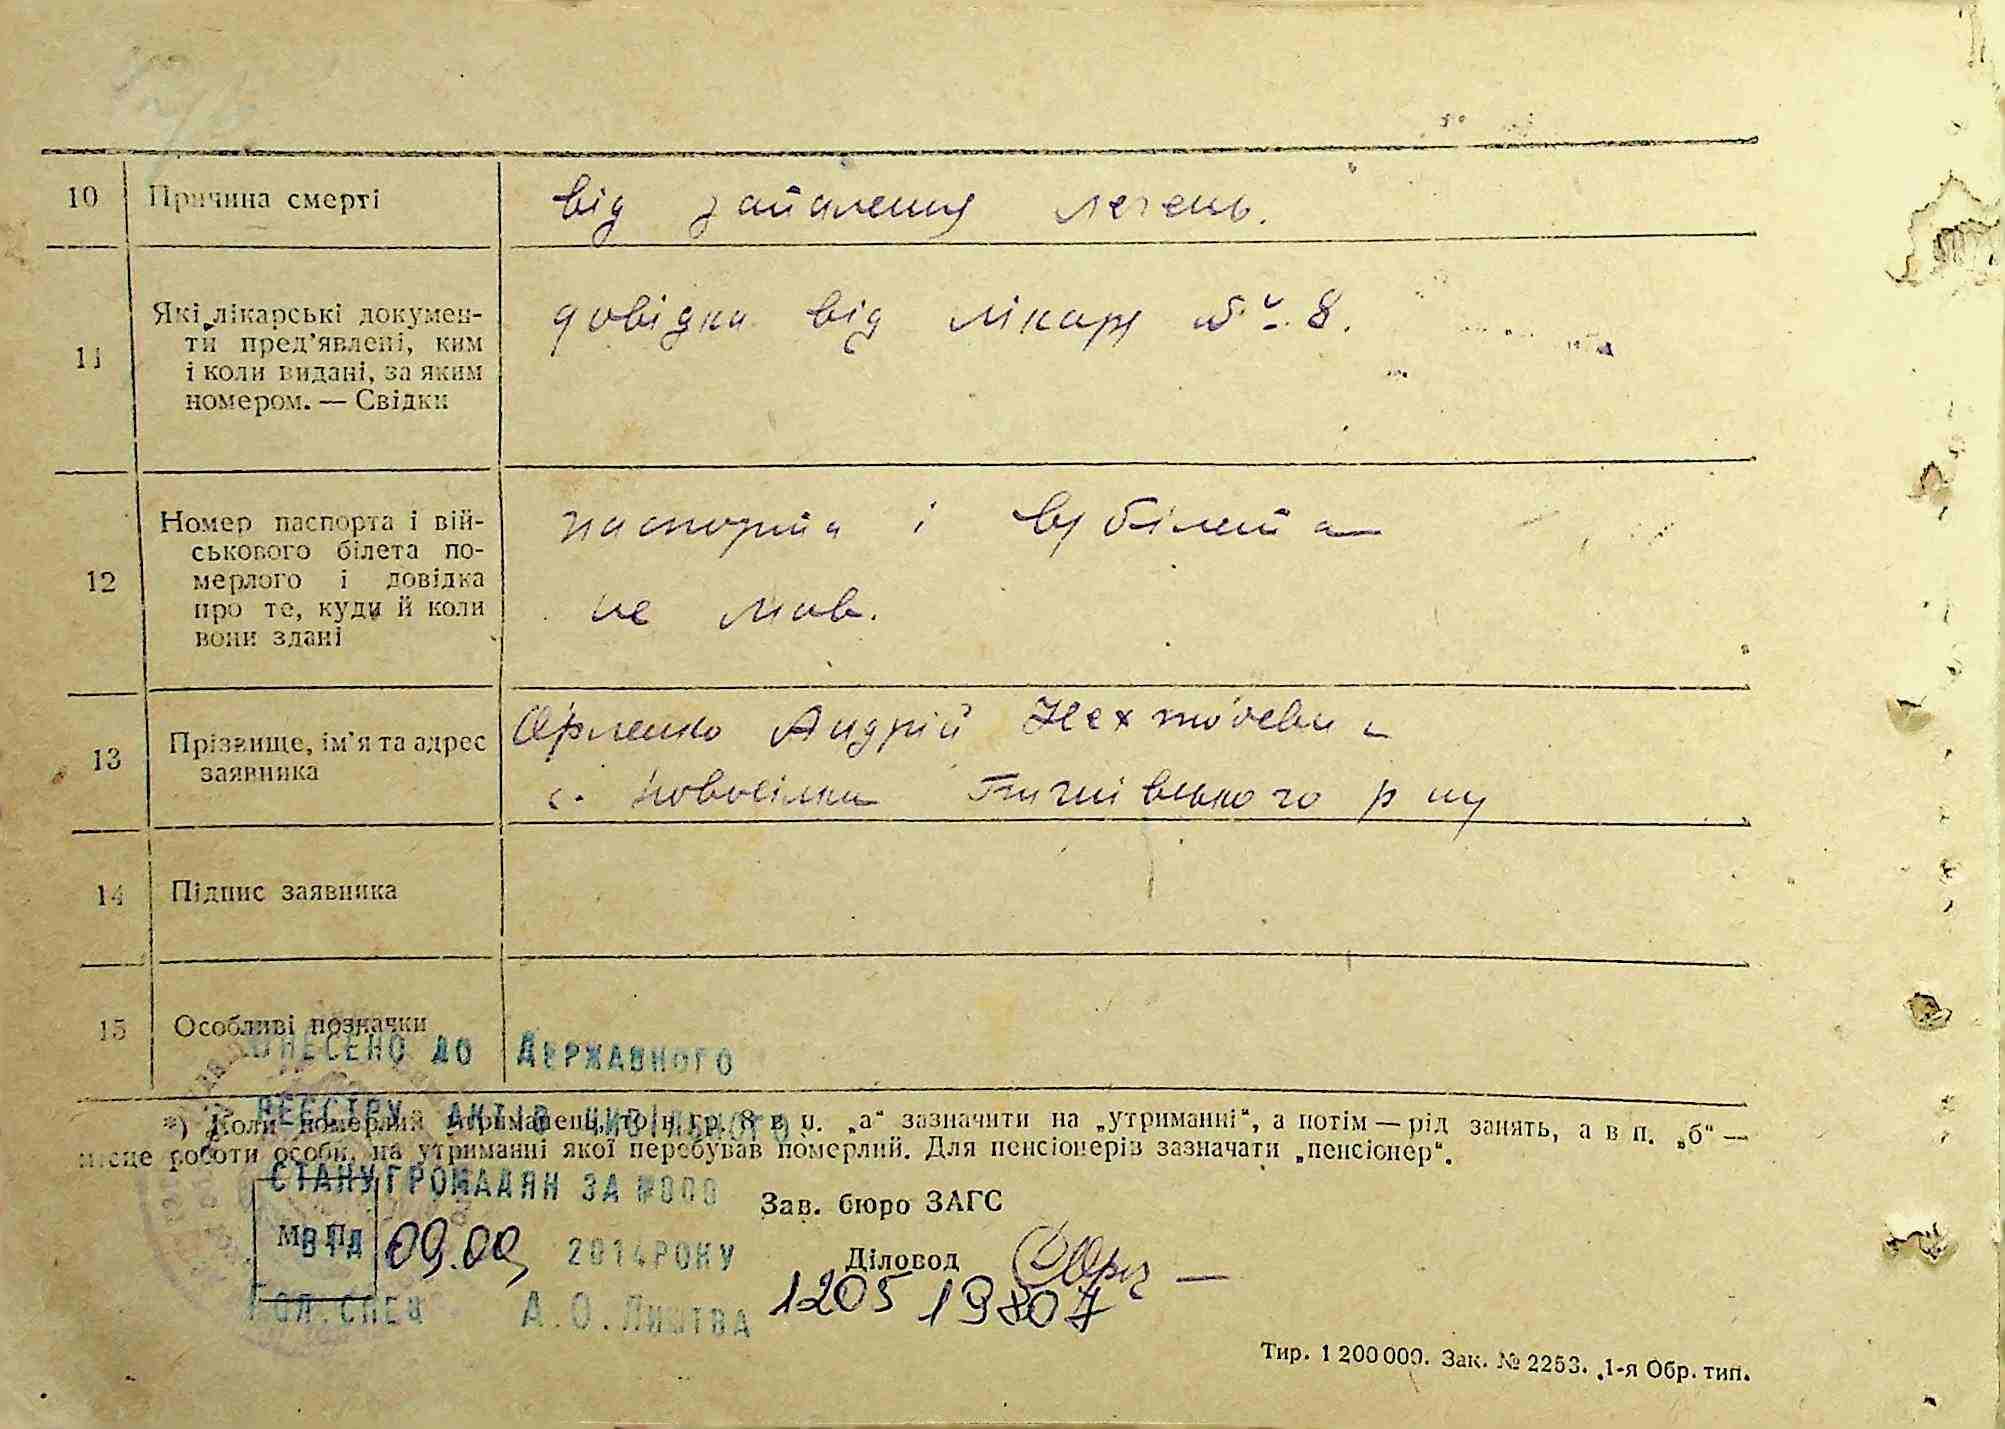 10 Причина смерті від запалення легень.
11 Які лікарські докумен-
ти пред’явлені, ким
і коли видані, за яким
номером. — Свідки
довідка від лікаря 8.
12 Номер паспорта і вій-
ськового білета по-
мерлого і довідка
про те, куди й коли
вони здані
паспорта і в/білета
не мав.
13 Прізвище, ім’я та адрес
заявника
Андрій
с. Новосілки р-ну
14 Підпис заявника
15 Особливі позначки
ВНЕСЕНО ДО ДЕРЖАВНОГО
РЕЄСТРУ АКТІВ ЦИВІЛЬНОГО
*) Коли померлий утриманець, то в гр. 8 в п. „а“ зазначити на „утриманні“, а потім — рід занять, а в п. „б“ —
місце роботи особи, на утриманні якої перебував померлий. Для пенсіонерів зазначати „пенсіонер“.
СТАНУ ГРОМАДЯН ЗА №
Зав. бюро ЗАГС
М. П.
ВІД 09.09. 2014 РОКУ
Діловод
ГОЛ.СПЕЦ А.О.Лиштва
1205 19807
Тир. 1 200 000. Зак. № 2253. 1-я Обр. тип.